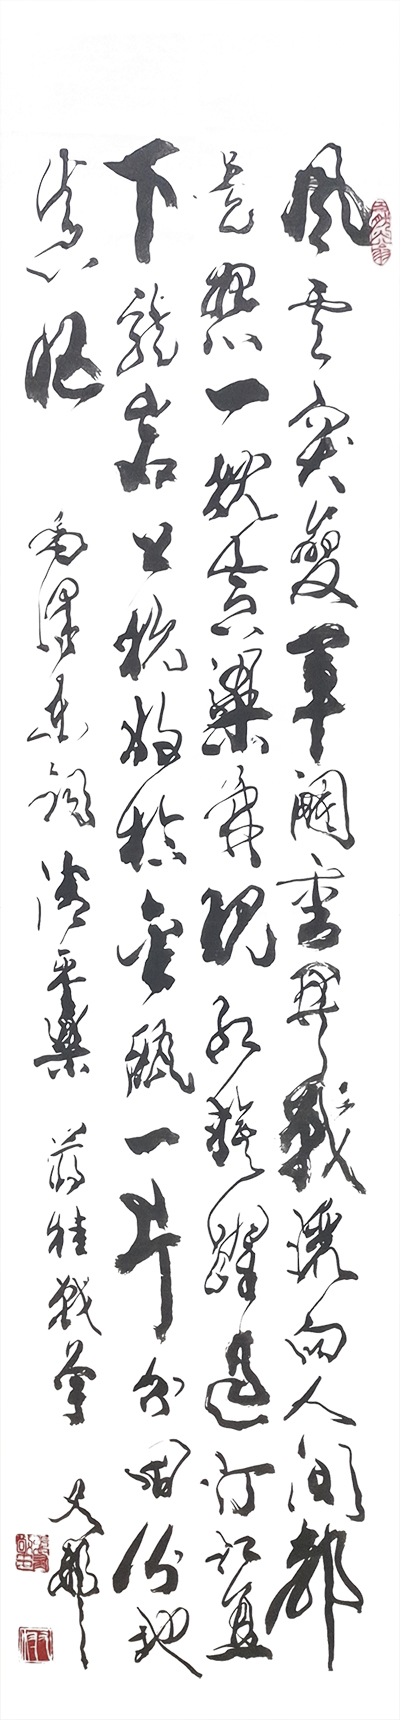 風雲突變軍閥重開戰灑向人間都
是怨一枕黃粱再現紅旗躍過汀江直
下龍岩上杭收拾金甌一片分田分地
真忙 毛澤東詞清平樂 蔣桂戰爭